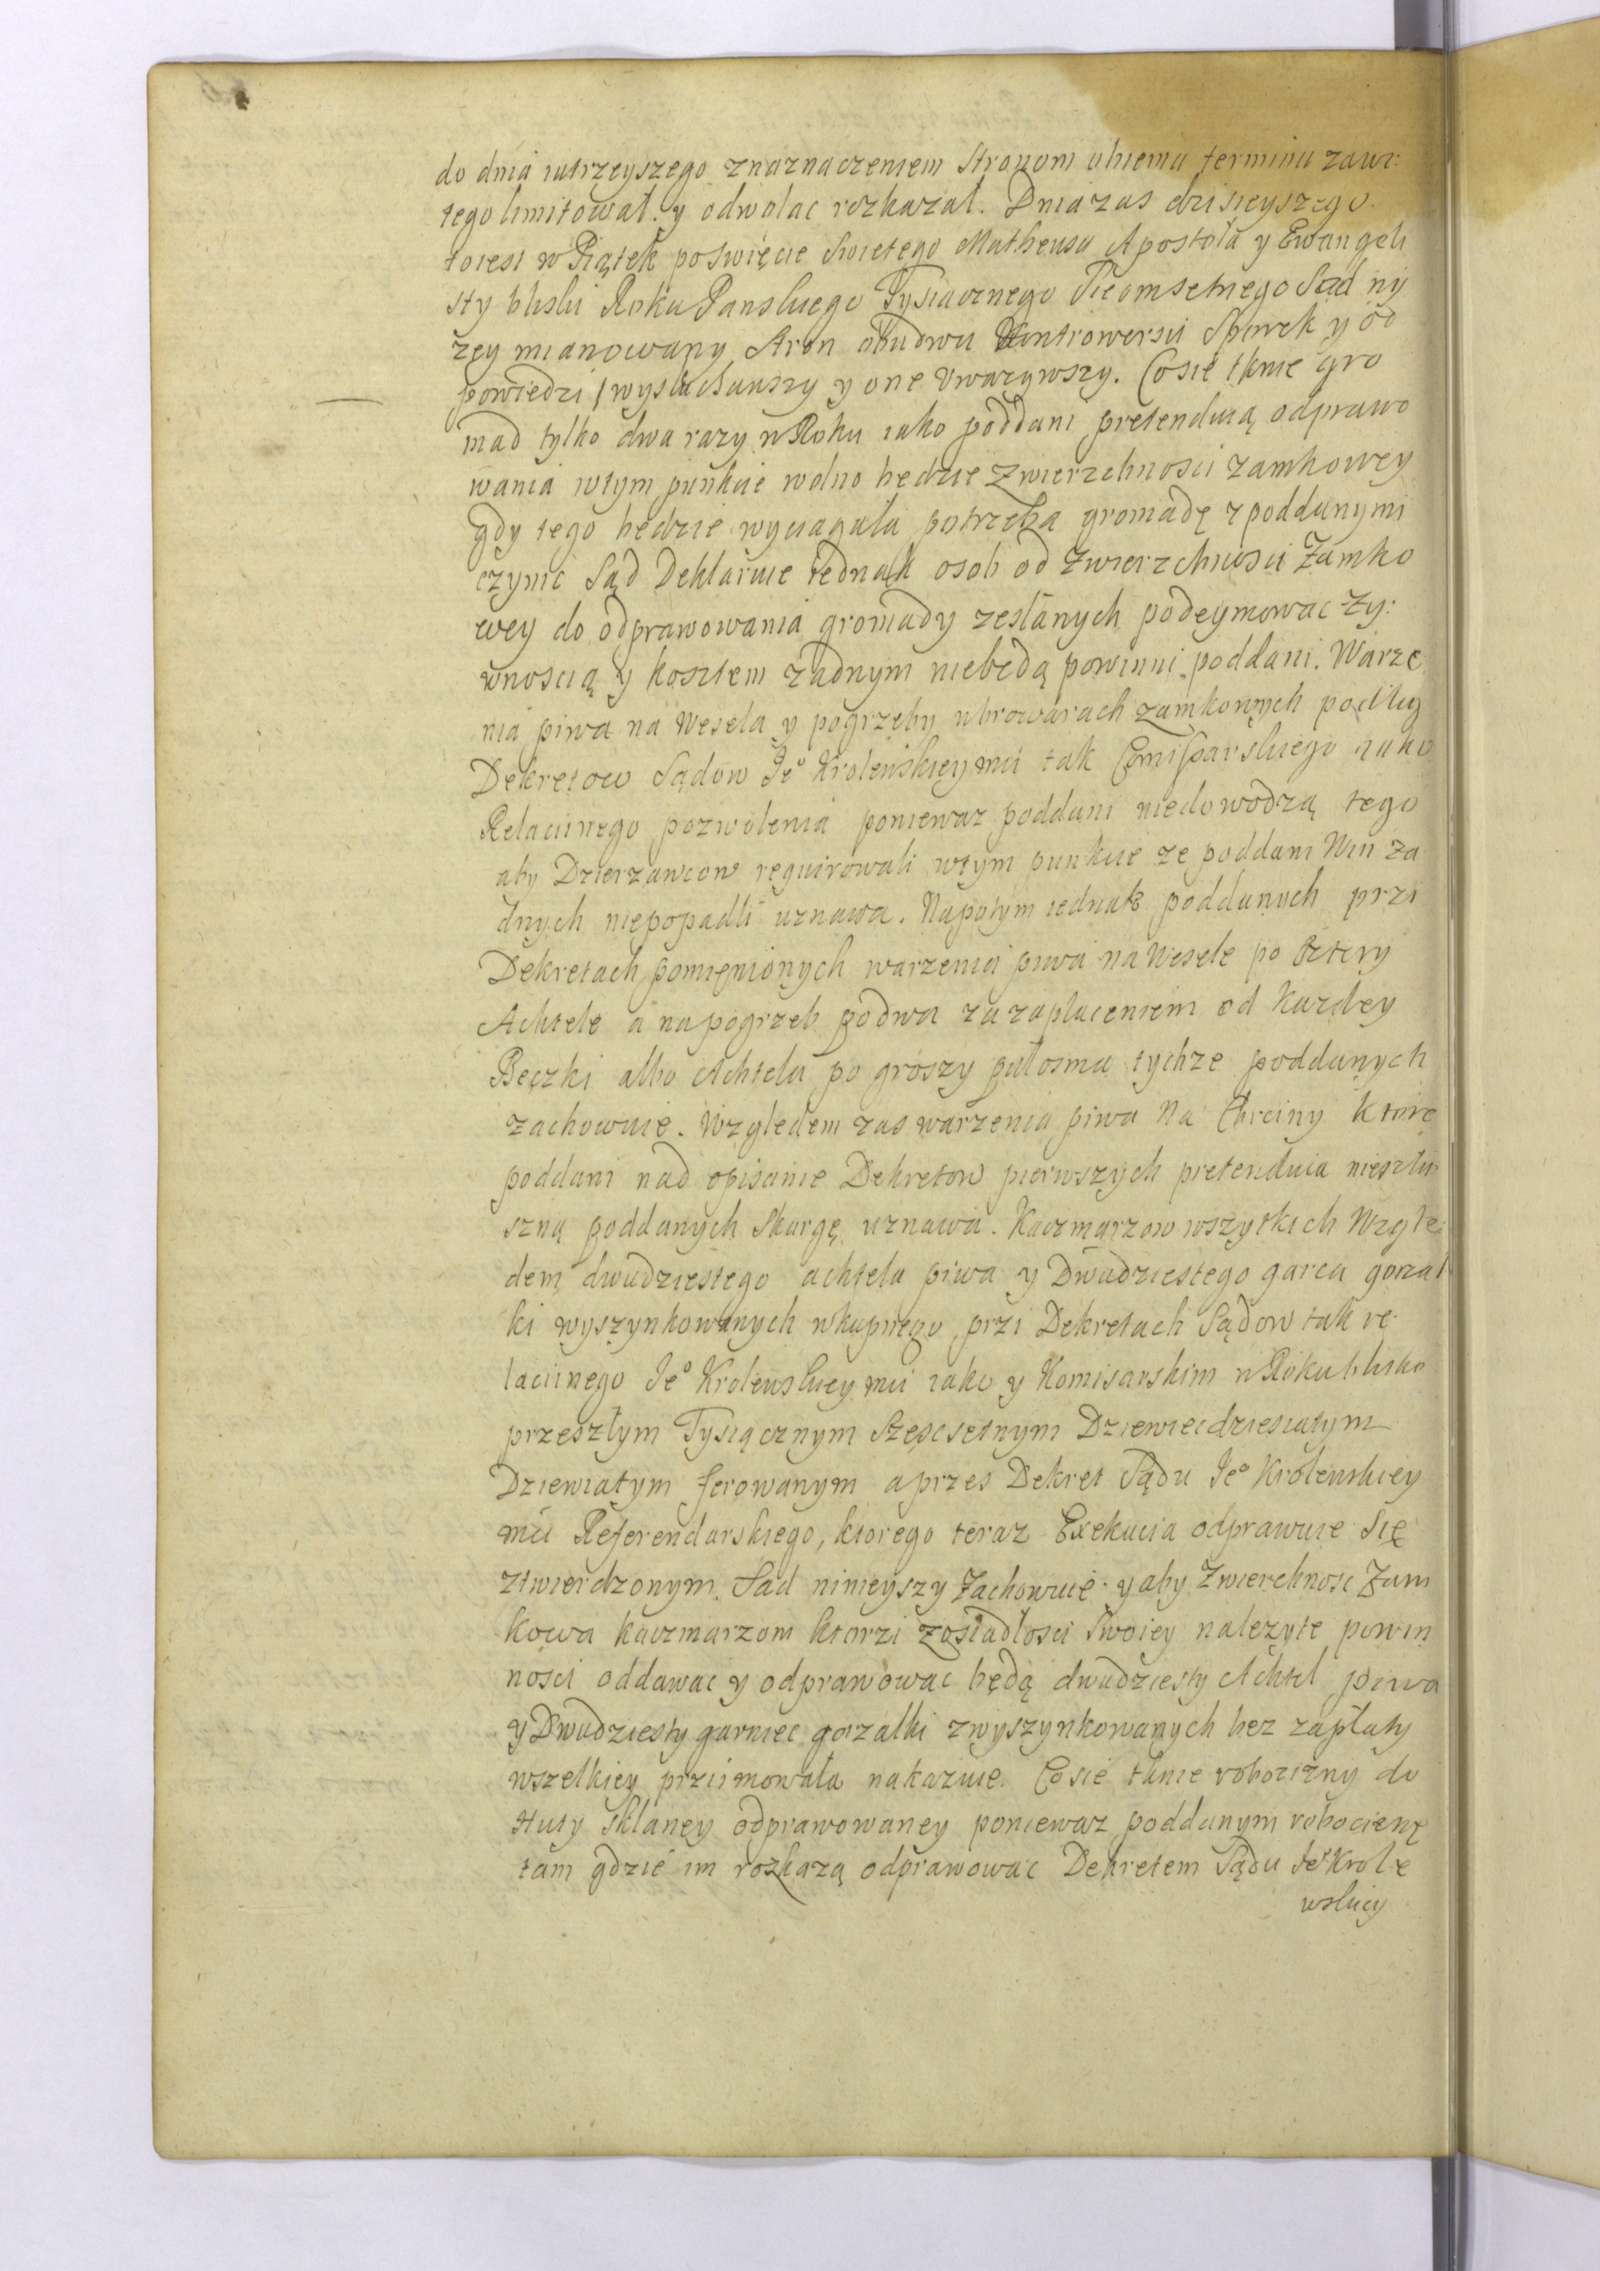 do dnia iutrzeyszego znaznaczeniem Stronom onemu terminu zawi:
tego limitował. y odwołac rozkazał. Dnia zas dzisieyszego
toiest w Piątek poswięcie Swietego Matheusa Apostoła y Ewangeli
sty bliski Roku Panskiego Tysiącznego Siedmsetnego Sad ni
zey mianowany Stron obudwu Kontrowersii Sporek y od
powiedzi wysłuchawszy y one vwazywszy. Cosie tknie gro
mad tylko dwa razy w Roku iako poddani pretenduią odprawo
wania wtym punkcie wolno bedzie Zwierzchnosci zamkowey
gdy tego bedzie wyciagała potrzeba gromadę z poddanymi
czynic Sąd Deklaruie iednak osob od Zwierzchnosci Zamko
wey do odprawowania gromady zesłanych podeymowac Zy:
wnoscią y kosztem zadnym niebedą powinni poddani. Warze
nia piwa na Wesela y pogrzeby wbrowarach zamkowych podług
Dekretow Sądow Je° Krolewskiey mci tak Comissarskiego iako
Relaciinego pozwolenia poniewaz poddani niedowodzą tego
aby Dzierzawcow requirowali wtym punkcie ze poddani Win za
dnych niepopadli uznawa. Napotym iednak poddanych przi
Dekretach pomienionych warzenia piwa na Wesele po Cztery
Achtele a na pogrzeb podwa za zapłaceniem od Kazdey
Beczki albo Achtela po groszy pułosma tychze poddanych
zachowuie. Względem zas warzenia piwa Na Chrciny Ktore
poddani nad opisanie Dekretow pierwszych pretenduia niesłu
szną poddanych Skargę uznawa. Kaczmarzow wszytkich Wzglę
dem dwudziestego achtela piwa y Dwudziestego garca gorzał
ki wyszynkowanych wkupnego przi Dekretach Sądow tak re
laciinego Je° Krolewskiey mci iako y Komisarskim w Roku blisko
przeszłym Tysiącznym Szescsetnym Dziewiecdziesiatym
Dziewiątym ferowanym aprzes Dekret Sądu Je° Krolewskiey
mci Referendarskiego, ktorego teraz Exekucia odprawuie Się
ztwierdzonym. Sad ninieyszy Zachowuie y aby Zwierchnosc Zam
kowa kaczmarzom ktorzi zosiadłosci Swoiey nalezyte powin
nosci oddawac y odprawowac będą dwudziesty Achtel piwa
y Dwudziesty garniec gorzalki zwyszynkowanych bez zapłaty
wszelkiey przimowała nakazuie. Co sie tknie robocizny do
Huty Sklaney odprawowaney poniewaz poddanym robociznę
tam gdzie im rozkazą odprawowac Dekretem Sądu Je° Krole
wskiey